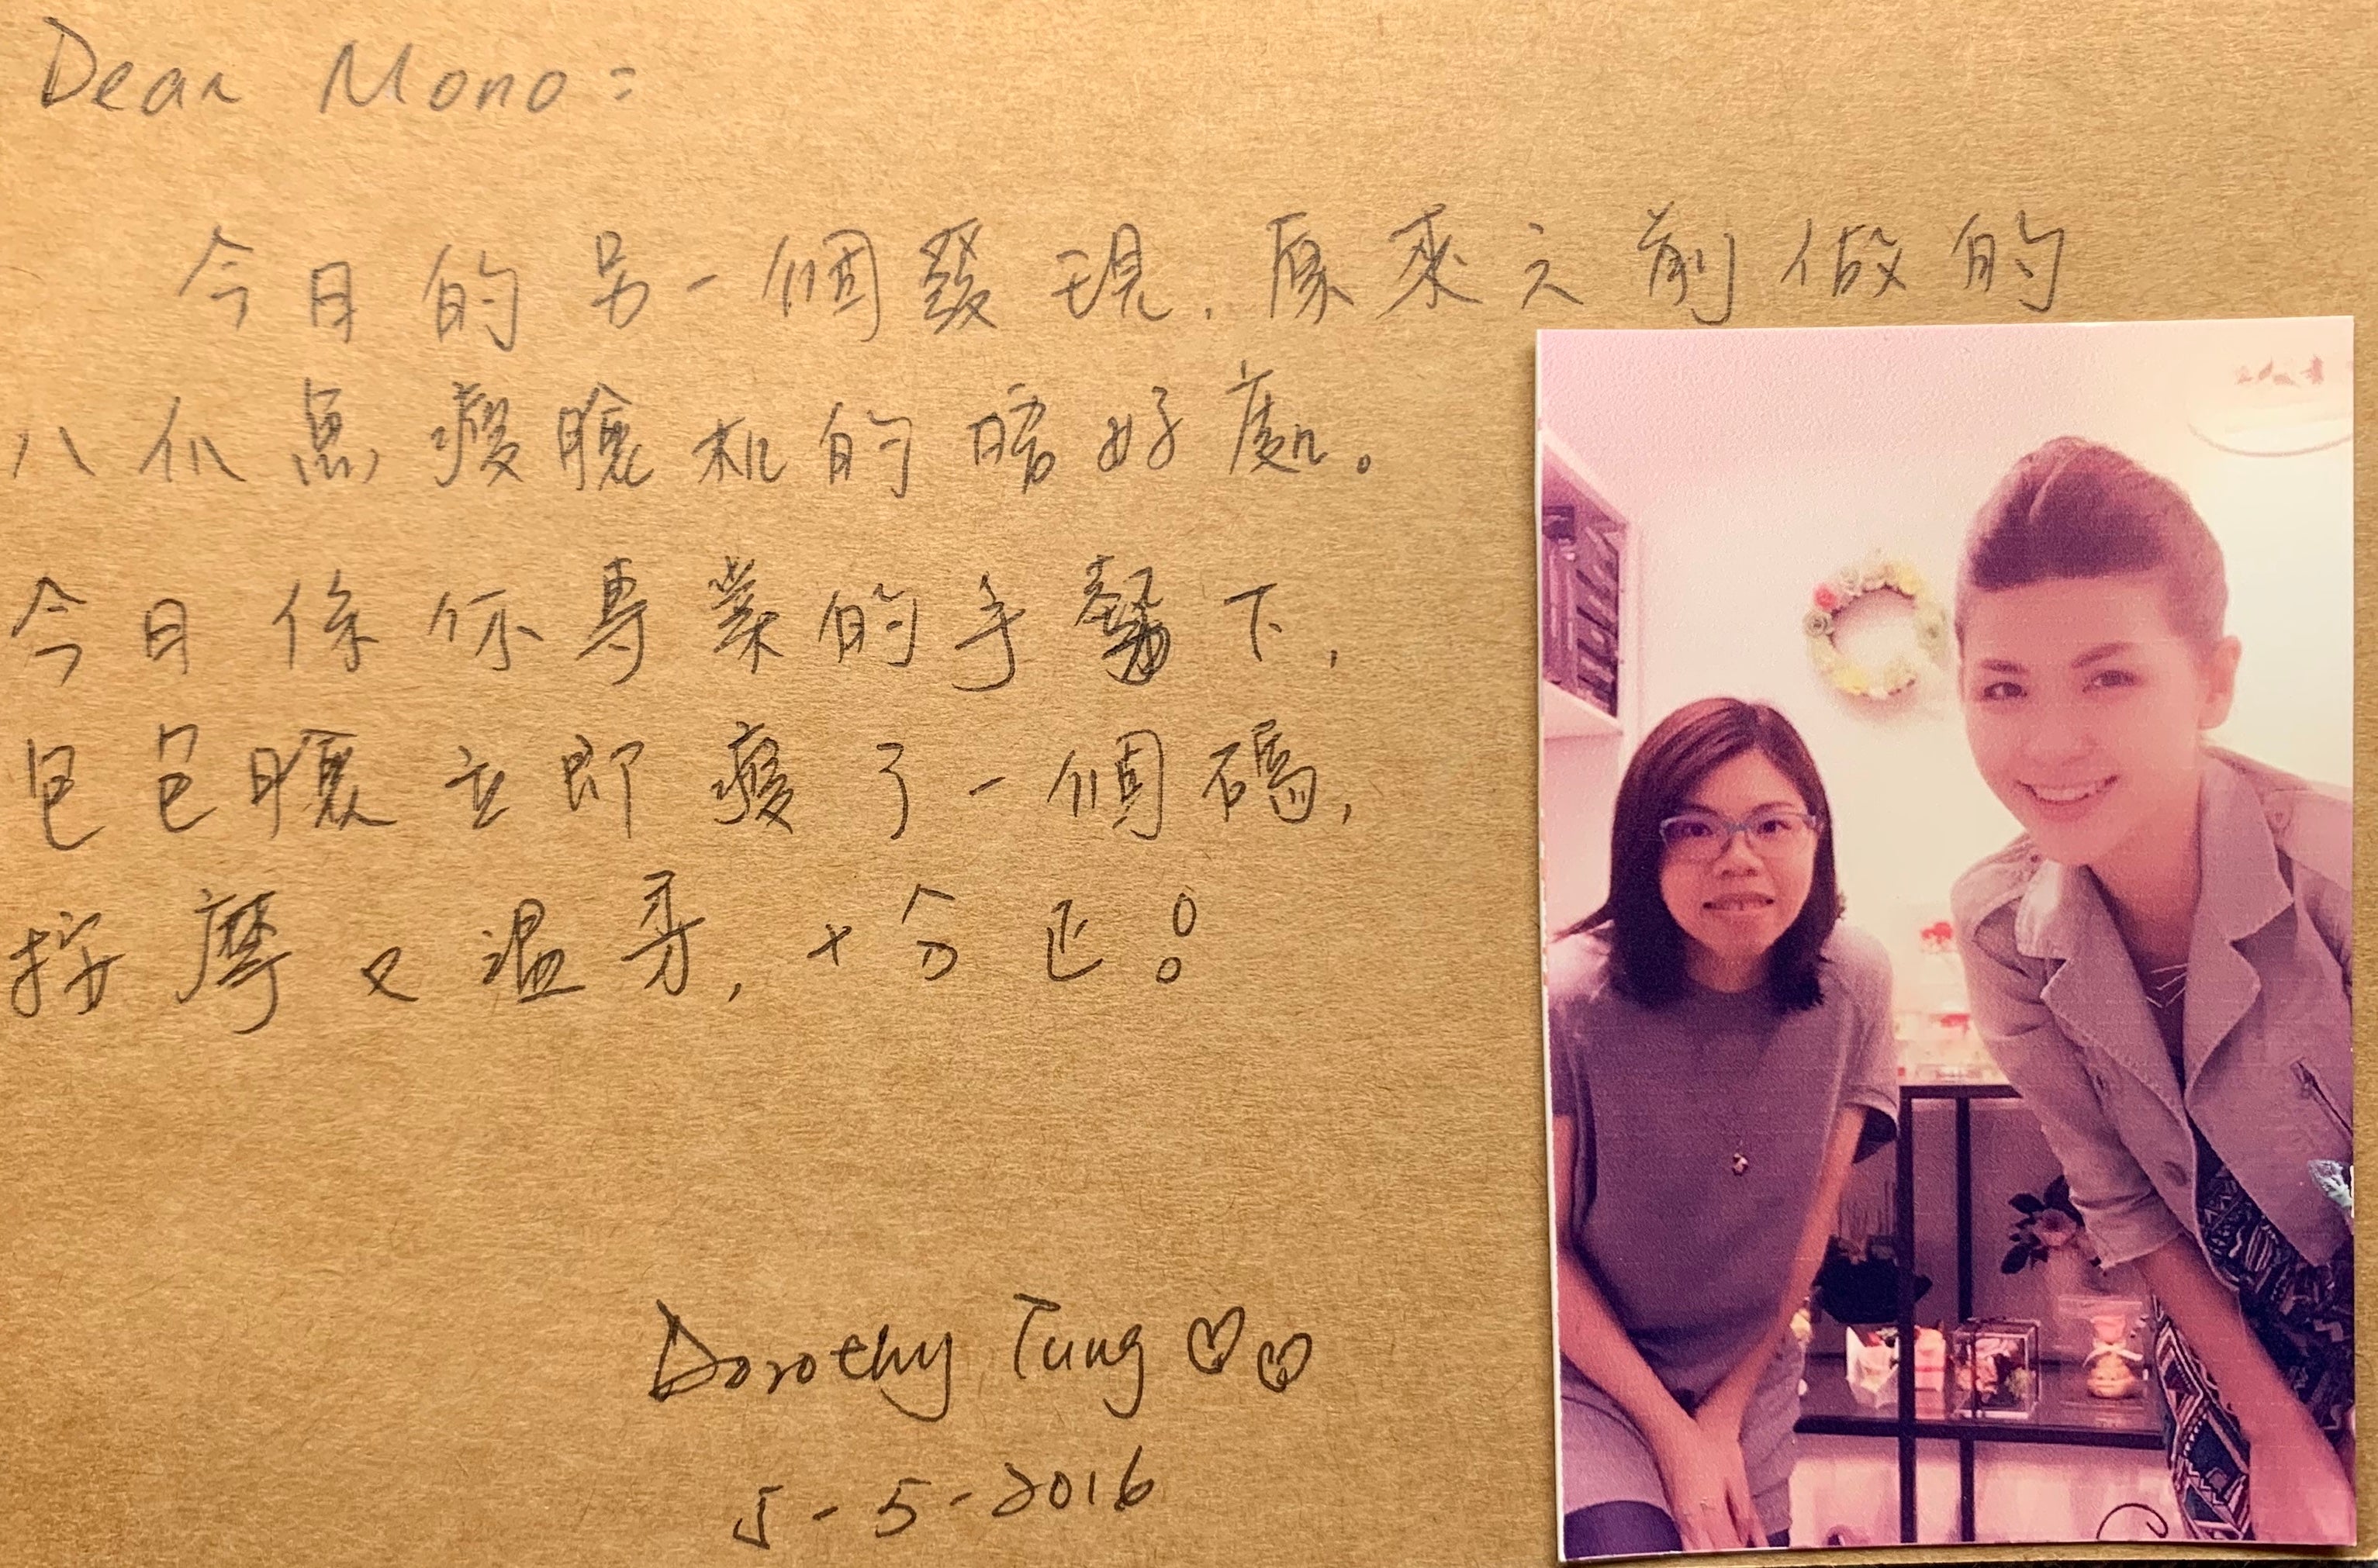 Dear Mono:
今日的另一個發現,原來之前做的
八爪魚瘦臉机的唔好處。
今日係你專業的手勢下,
包包臉立即瘦了一個碼,
按摩又溫柔,十分正!
Dorothy Tung ♡♡
5-5-2016